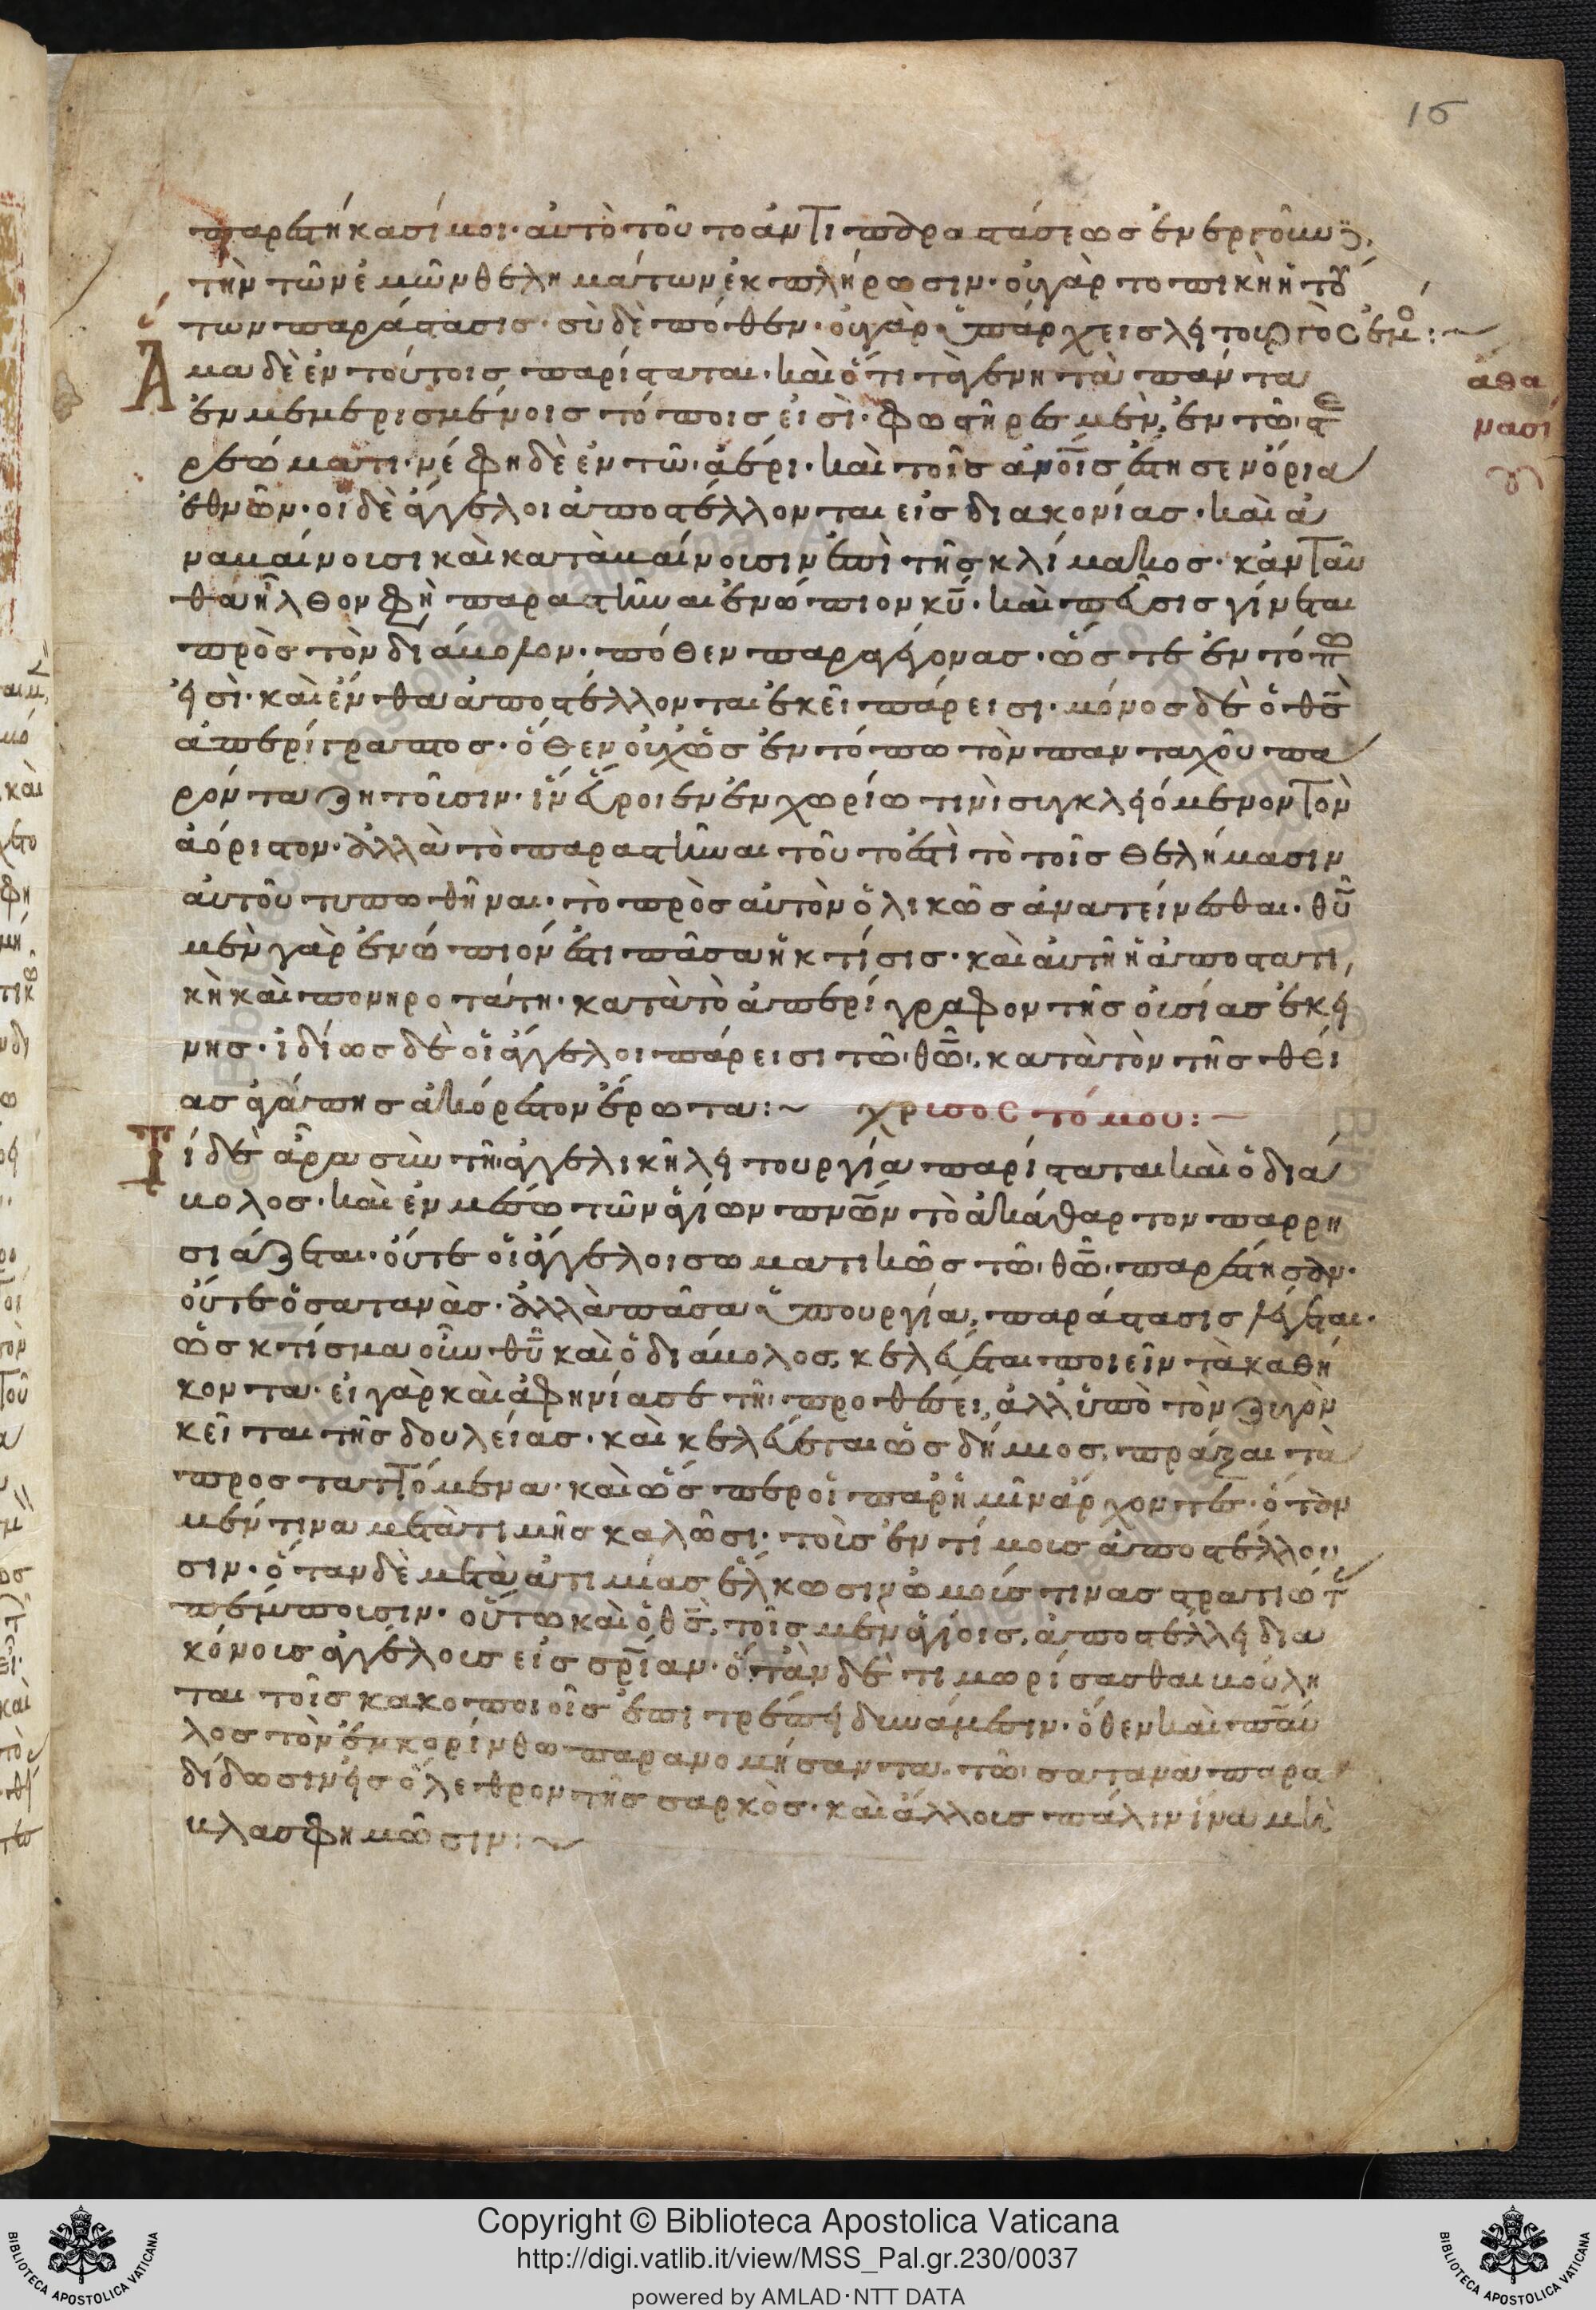 16
παρεστήκασί μοι· αὐτὸ τοῦτο ἀντὶ παραστάσεως ἐνεργοῦν
τὴν τῶν ἐμῶν θελημάτων ἐκπλήρωσιν· οὐ γὰρ τοπικὴ ἡ του
των παράστασις· σὺ δὲ πόθεν· οὐ γὰρ ὑπάρχεις λειτουργὸς ἐμο :~
Ἅμα δὲ ἐν τούτοις παρίσταται· καὶ ὅτι τὰ γενητὰ πάντα
ἐν μεμερισμένοις τόποις εἰσὶ· φωστῆρες μὲν, ἐν τῶ στε
ρεώματι· νέφη δὲ ἐν τῶ ἀέρι· καὶ τοῖς ἀνοις ἔστησεν ὅρια
ἐθνῶν· οἱ δὲ ἄγγελοι ἀποστέλλονται εἰς διακονίας· καὶ ἀ
ναβαίνουσι καὶ καταβαίνουσιν ἐπὶ τῆς κλίμακος· κἀνταῦ
θα ἦλθον φη παραστῆναι ἐνώπιον κυ· καὶ πεῦσις γίνεται
πρὸς τὸν διάβολον· πόθεν παραγέγονας· ὥστε ἐν τόπω
εἰσὶ· καὶ ἔνθα ἀποστέλλονται ἐκεῖ πάρεισι· μόνος δὲ ὁ θς
ἀπερίγραπτος· ὅθεν οὐχ ὡς ἐν τόπω τὸν πανταχοῦ πα
ρόντα ζητοῦσιν· ἵν εὕροιεν ἐν χωρίω τινὶ συγκλειόμενον τὸν
ἀόριστον· ἀλλὰ τὸ παραστῆναι τοῦτο ἐστὶ τὸ τοῖς θελήμασιν
αὐτοῦ τυπωθῆναι· τὸ πρὸς αὐτὸν ὁλικῶς ἀνατείνεσθαι· θυ
μὲν γὰρ ἐνώπιόν ἐστι πᾶσα ἡ κτίσις· καὶ αὐτὴ ἡ ἀποστατι
κὴ καὶ πονηροτάτη· κατὰ τὸ ἀπερίγραφον τῆς οὐσίας ἐκεί
νης· ἰδίως δὲ οἱ ἄγγελοι πάρεισι τῶ θω, κατὰ τὸν τῆς θεί
ας ἀγάπης ἀκόρεστον ἔρωτα :~ χρισοστόμου :~
Τί δὲ ἆρα σὺν τῆ ἀγγελικῆ λειτουργία παρίσταται καὶ ὁ διά
βολος· καὶ ἐν μέσω τῶν ἁγίων πνων τὸ ἀκάθαρτον παρρη
σιάζεται· οὔτε οἱ ἄγγελοι σωματικῶς τῶ θω παρέστησαν·
οὔτε ὁ σατανὰς· ἀλλὰ πᾶσα ὑπουργία, παράστασις λέγεται·
ὡς κτίσμα οὖν θυ καὶ ὁ διάβολος, κελεύεται ποιεῖν τὰ καθή
κοντα· εἰ γὰρ καὶ ἀφηνίασε τῆ προθέσει, ἀλλ ὑπὸ τὸν ζυγὸν
κεῖται τῆς δουλείας· καὶ κελεύεται ὡς δήμιος, πράξαι τὰ
προσταττόμενα· καὶ ὥσπερ οἱ παρ ἡμῖν ἄρχοντες· ὅταν
μέν τινα μετὰ τιμῆς καλῶσι· τοῖς ἐντίμοις ἀποστέλλου
σιν· ὅταν δὲ μετὰ ἀτιμίας ἕλκωσιν ὠμούς τινας στρατιώτ
πέμπουσιν· οὕτω καὶ ὁ θς, τοῖς μὲν ἁγίοις, ἀποστέλλει δια
κόνους ἀγγέλους εἰς σριαν· ὅταν δὲ τιμωρίσασθαι βούλη
ται τοῖς κακοποιοῖς ἐπιτρέπει δυνάμεσιν· ὅθεν καὶ παῦ
λος τὸν ἐν κορίνθω παρανομήσαντα, τῶ σατανᾶ παρα
δίδωσιν εἰς ὄλεθρον τῆς σαρκός· καὶ ἄλλους πάλιν ἵνα μὴ
βλασφημῶσιν :~
ἀθα
νασί
ου
Copyright © Biblioteca Apostolica Vaticana
http://digi.vatlib.it/view/MSS_Pal.gr.230/0037
powered by AMLAD·NTT DATA
BIBLIOTECA APOSTOLICA VATICANA
BIBLIOTECA APOSTOLICA VATICANA